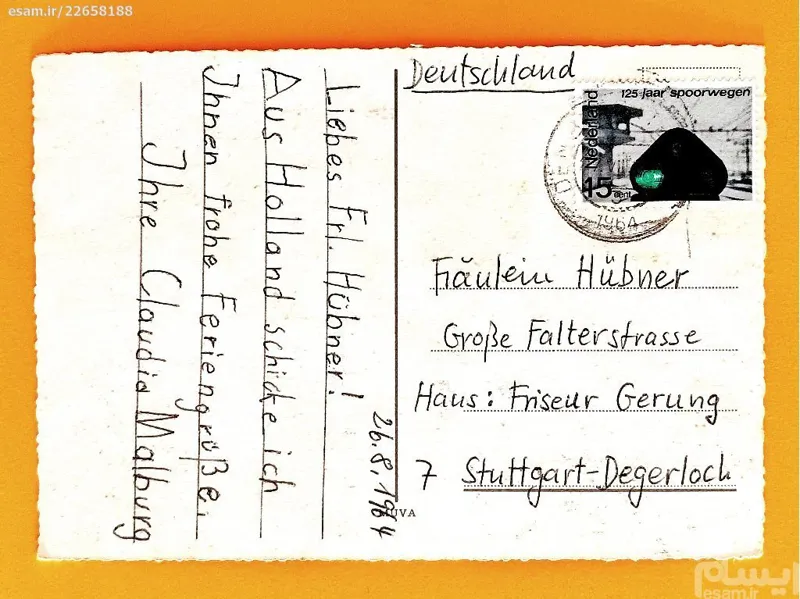 esam.ir/22658188
Liebes Frl. Hübner!
Aus Holland schicke ich
Ihnen frohe Feriengrüße.
Ihre Claudia Malburg
26.8.1964
Deutschland
125 jaar spoorwegen
Nederland
15 cent
1964
Fräulein Hübner
Große Falterstrasse
Haus: Friseur Gerung
7 Stuttgart-Degerloch
ایسام
esam.ir